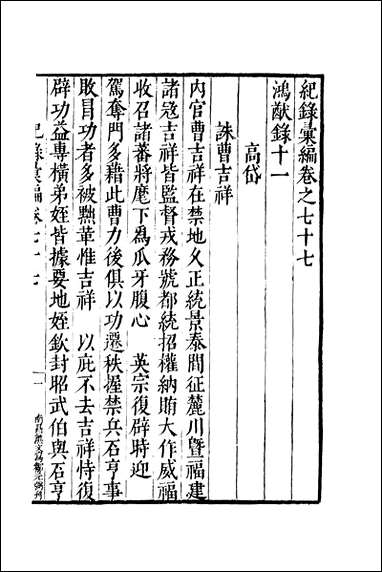 紀錄彙編卷之七十七
鴻猷錄十一
高岱
誅曹吉祥
內官曹吉祥在禁地久正統景泰間征麓川暨福建
諸冦吉祥皆監督戎務號都統招權納賄大作威福
收召諸蕃將麾下爲瓜牙腹心　英宗復辟時迎
駕奪門多藉此曹力後俱以功遷秩握禁兵石亨事
敗冐功者多被黜革惟吉祥　以庇不去吉祥恃復
辟功益專橫弟姪皆據要地姪欽封昭武伯與石亨
紀錄彙編卷七十七
一